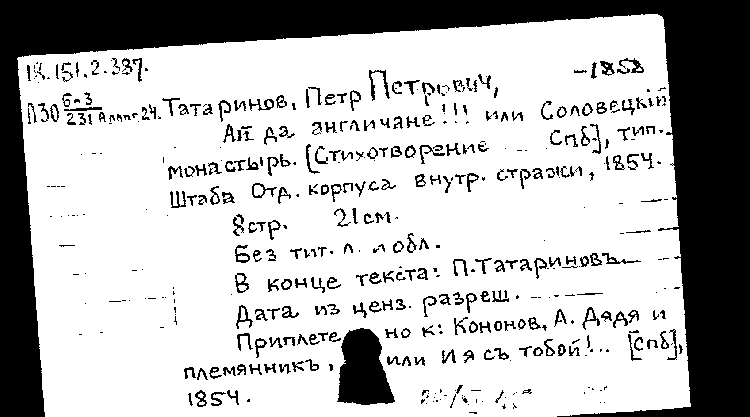 18.151.2.387.
Татаринов, Петр Петрович, -1858
П30 6-3/231 24.
Ай да англичане!!! или Соловецкiй
монастырь. [Стихотворение Спб], тип.
Штаба Отд. корпуса внутр. стражи, 1854.
8стр. 21см.
Без тит. л. и обл.
В конце текста: П.Татариновъ.
Дата из ценз. разреш.
Приплете но к: Кононов, А. Дядя и
племянникъ, или И я съ тобой!... [Спб],
1854.